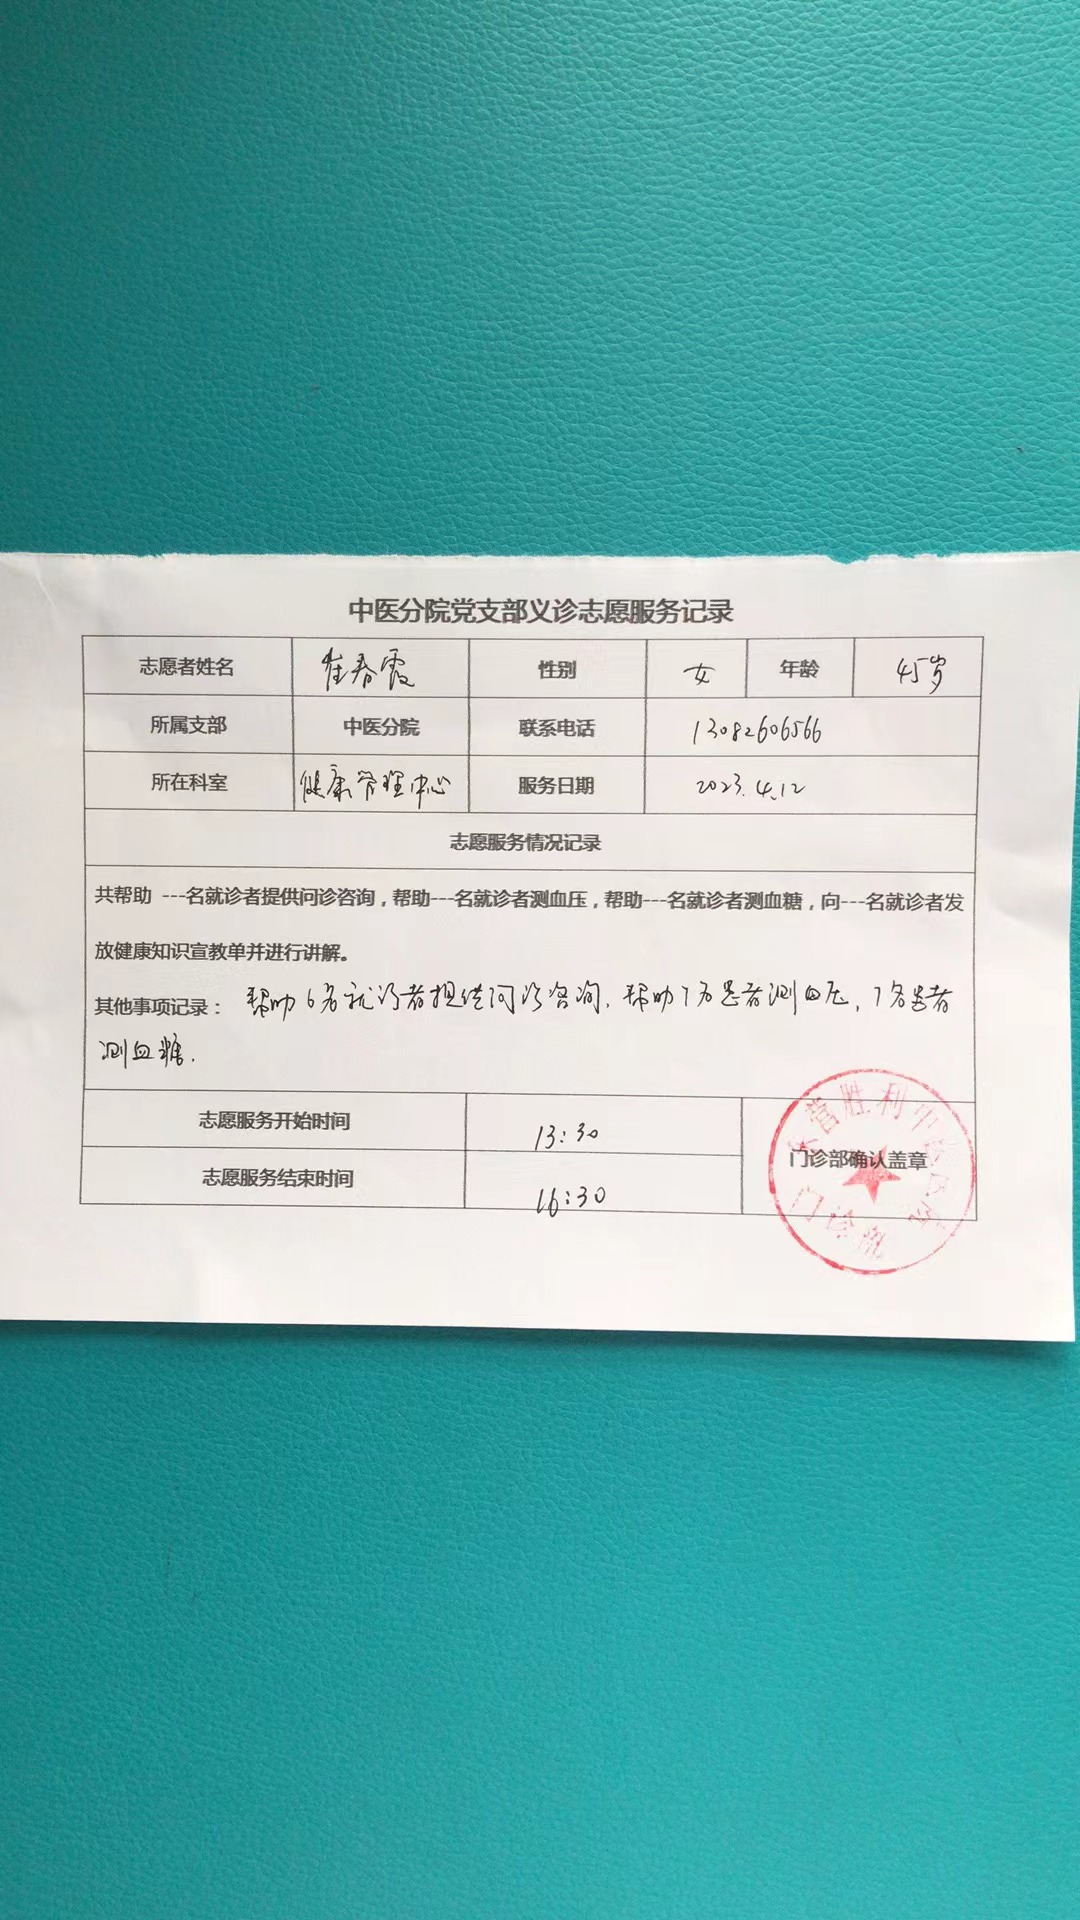 中医分院党支部义诊志愿服务记录
志愿者姓名 崔春霞 性别 女 年龄 45岁
所属支部 中医分院 联系电话 13082606566
所在科室 健康管理中心 服务日期 2023.4.12
志愿服务情况记录
共帮助 ---名就诊者提供问诊咨询，帮助---名就诊者测血压，帮助---名就诊者测血糖，向---名就诊者发
放健康知识宣教单并进行讲解。
其他事项记录： 帮助6名就诊者提供问诊咨询.帮助7名患者测血压，7名患者
测血糖.
志愿服务开始时间 13:30
门诊部确认盖章
志愿服务结束时间 16:30
东营胜利中医医院
门诊部